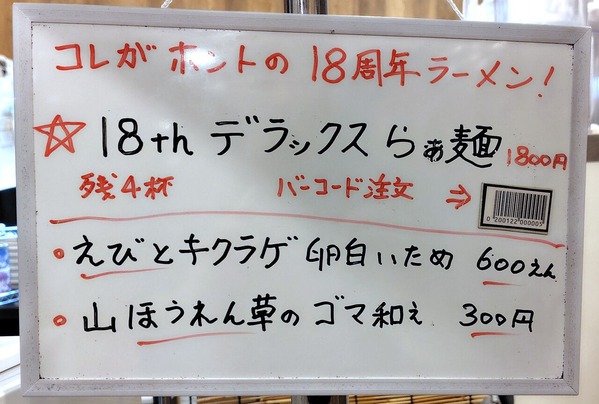 コレがホントの 18周年ラーメン!
☆ 18th デラックスらぁ麺 1800円
残4杯 バーコード注文 ⇒
0 200122 000005
・えびとキクラゲ 卵白いため 600えん
・山ほうれん草の ゴマ和え 300円